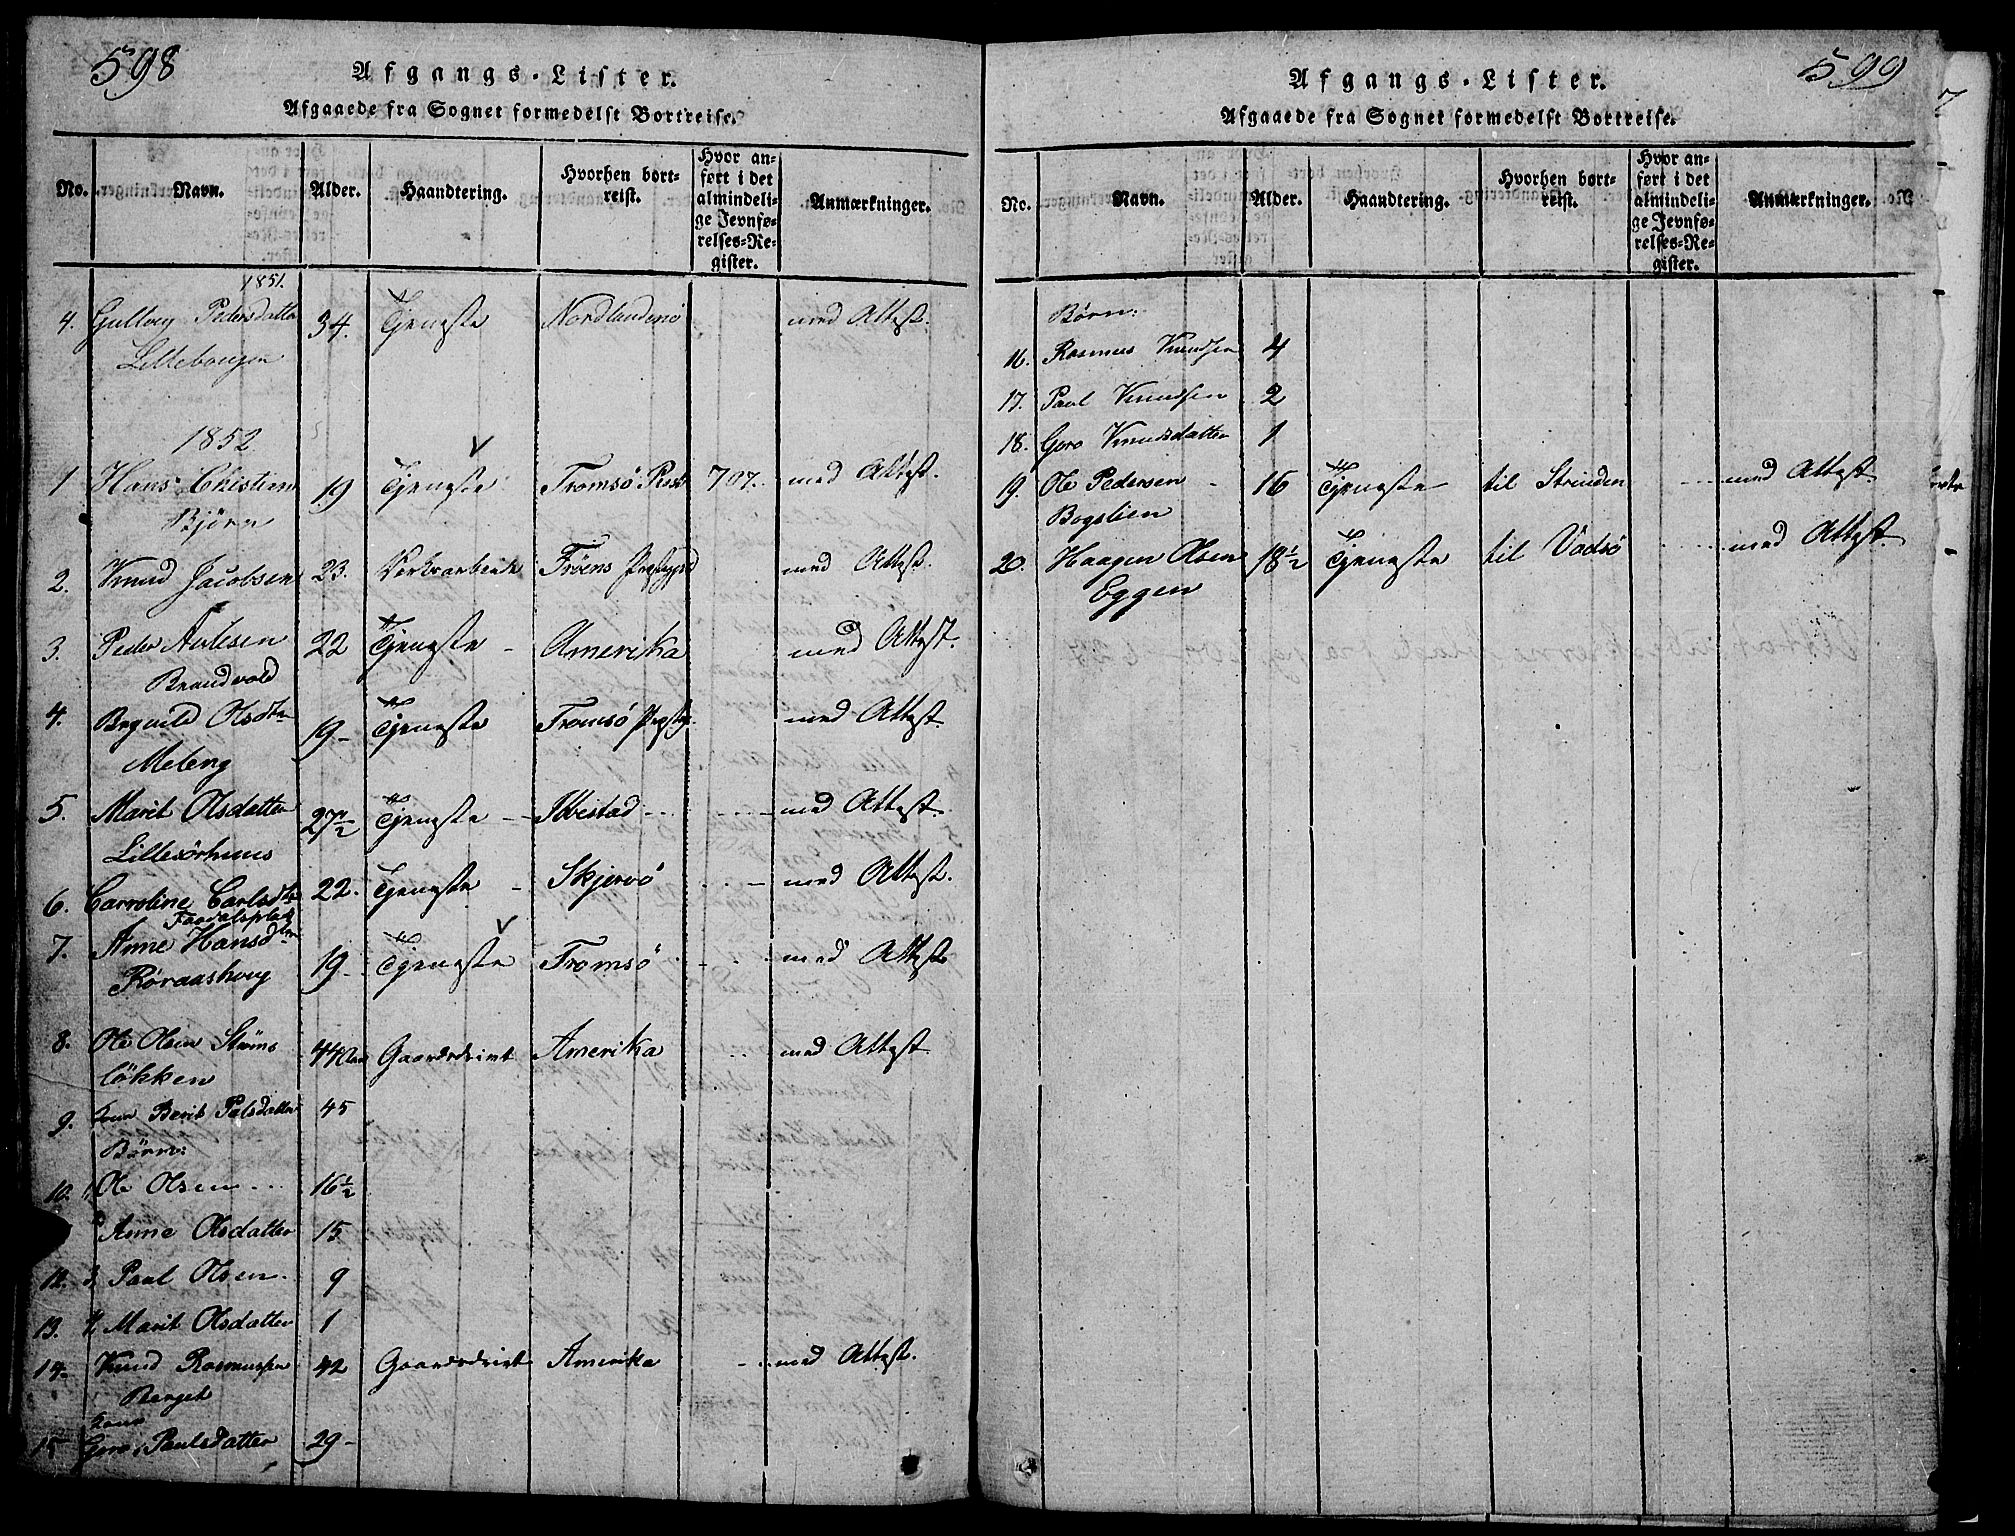 598
Afgangs-Lister.
Afgaaede fra Sognet formedelst Bortreise.
No. Navn. Alder. Haandtering. Hvorhen bortreist. Hvor anført i det almindelige Jevnførelses-Register. Anmærkninger.
1851.
4. Pedersdatter 34. Tjeneste med Attest.
1852.
1 Hans Christian 19 Tjeneste Tromsö 707. med Attest.
Björn
2. Knud Jacobsen 23. med Attest.
3. Peder 22 Tjeneste - Amerika med Attest.
Brandvold
4. Olsdtr 19- Tjeneste Tromsö med Attest.
Meleng
5. Marit Olsdatter 27 1/2 Tjeneste - Ibestad med Attest.
6. Carroline Carlsdtr 22. Tjeneste - Skjervö - med Attest.
7. Anne Hansdtr 19- Tjeneste Tromsö med Attest
Röraashoug
8. Ole Olsen Gaardsdrivt Amerika med Attest
lökken
9. Kone Berit 45
Börn:
10. 1, Ole Olsen 16 1/2
2 Anne Olsdatter 15
12. 3, Paul Olsen 9
13. 4 Marit Olsdatter 1
14. Knud Rasmussen 42 Gaardsdrivt Amerika med Attest.
Berget
Kone
15 Goro Paulsdatter 29-
599
Afgangs-Lister.
Afgaaede fra Sognet formedelst Bortreise.
No. Navn. Alder. Haandtering. Hvorhen bortreist. Hvor anført i det almindelige Jevnførelses-Register. Anmærkninger.
Börn:
16. Rasmus Knudsen 4
17. Paul Knudsen 2
18. Goro Knudsdatter 1
19. Ole Pedersen 16 Tjeneste til Strinden med Attest.
Bogslien
20. Haagen Olsen 18 1/2 Tjeneste til Vadsö med Attest.
Eggen